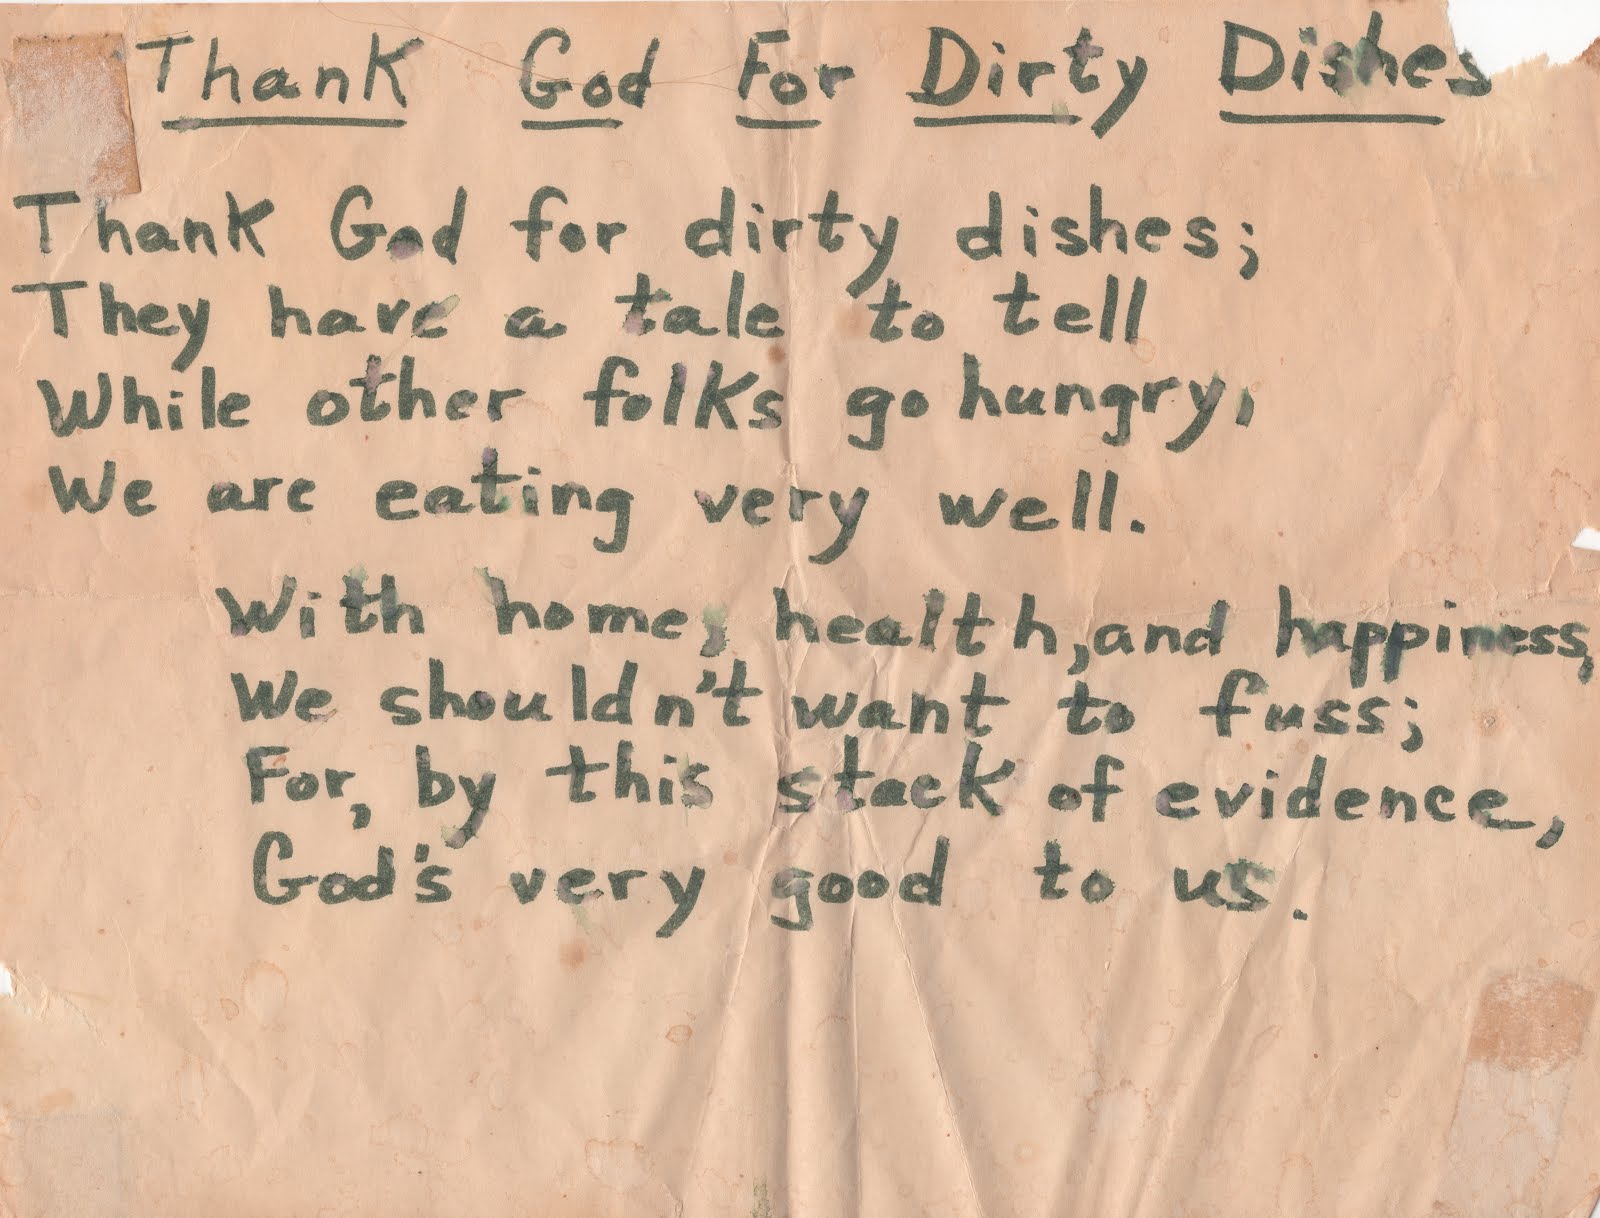 Thank God For Dirty Dishes
Thank God for dirty dishes;
They have a tale to tell
While other folks go hungry,
We are eating very well.
With home, health, and happiness,
We shouldn't want to fuss;
For, by this stack of evidence,
God's very good to us.